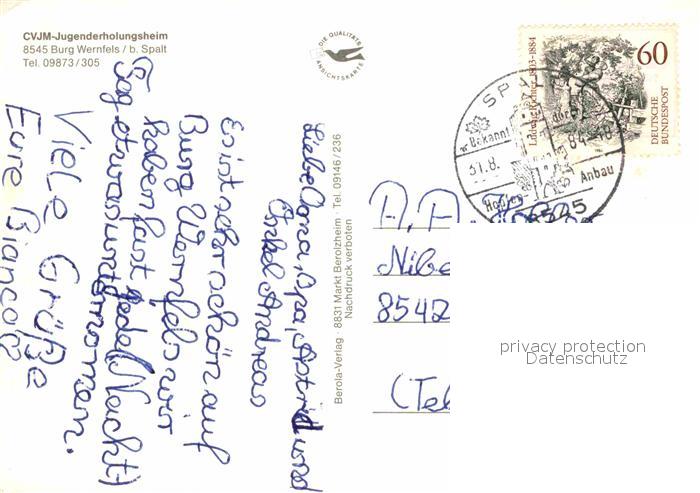 CVJM-Jugenderholungsheim
8545 Burg Wernfels / b. Spalt
Tel. 09873 / 305
DIE QUALITÄTS
ANSICHTSKARTE
Liebe Oma, Opa, Astrid und
Onkel Andreas
Es ist sehr schön auf
Burg Wernfels wir
haben fast jede(Nacht)
Tag etwas unternommen.
Viele Grüße
Eure Bianca
Berola-Verlag · 8831 Markt Berolzheim · Tel. 09146/236
Nachdruck verboten
Ludwig Richter 1803-1884
60
DEUTSCHE
BUNDESPOST
Bekannt
31.8.
84-18
Hopfen
Anbau
8545
A. A.
Nibe
8542
(Tel
privacy protection
Datenschutz